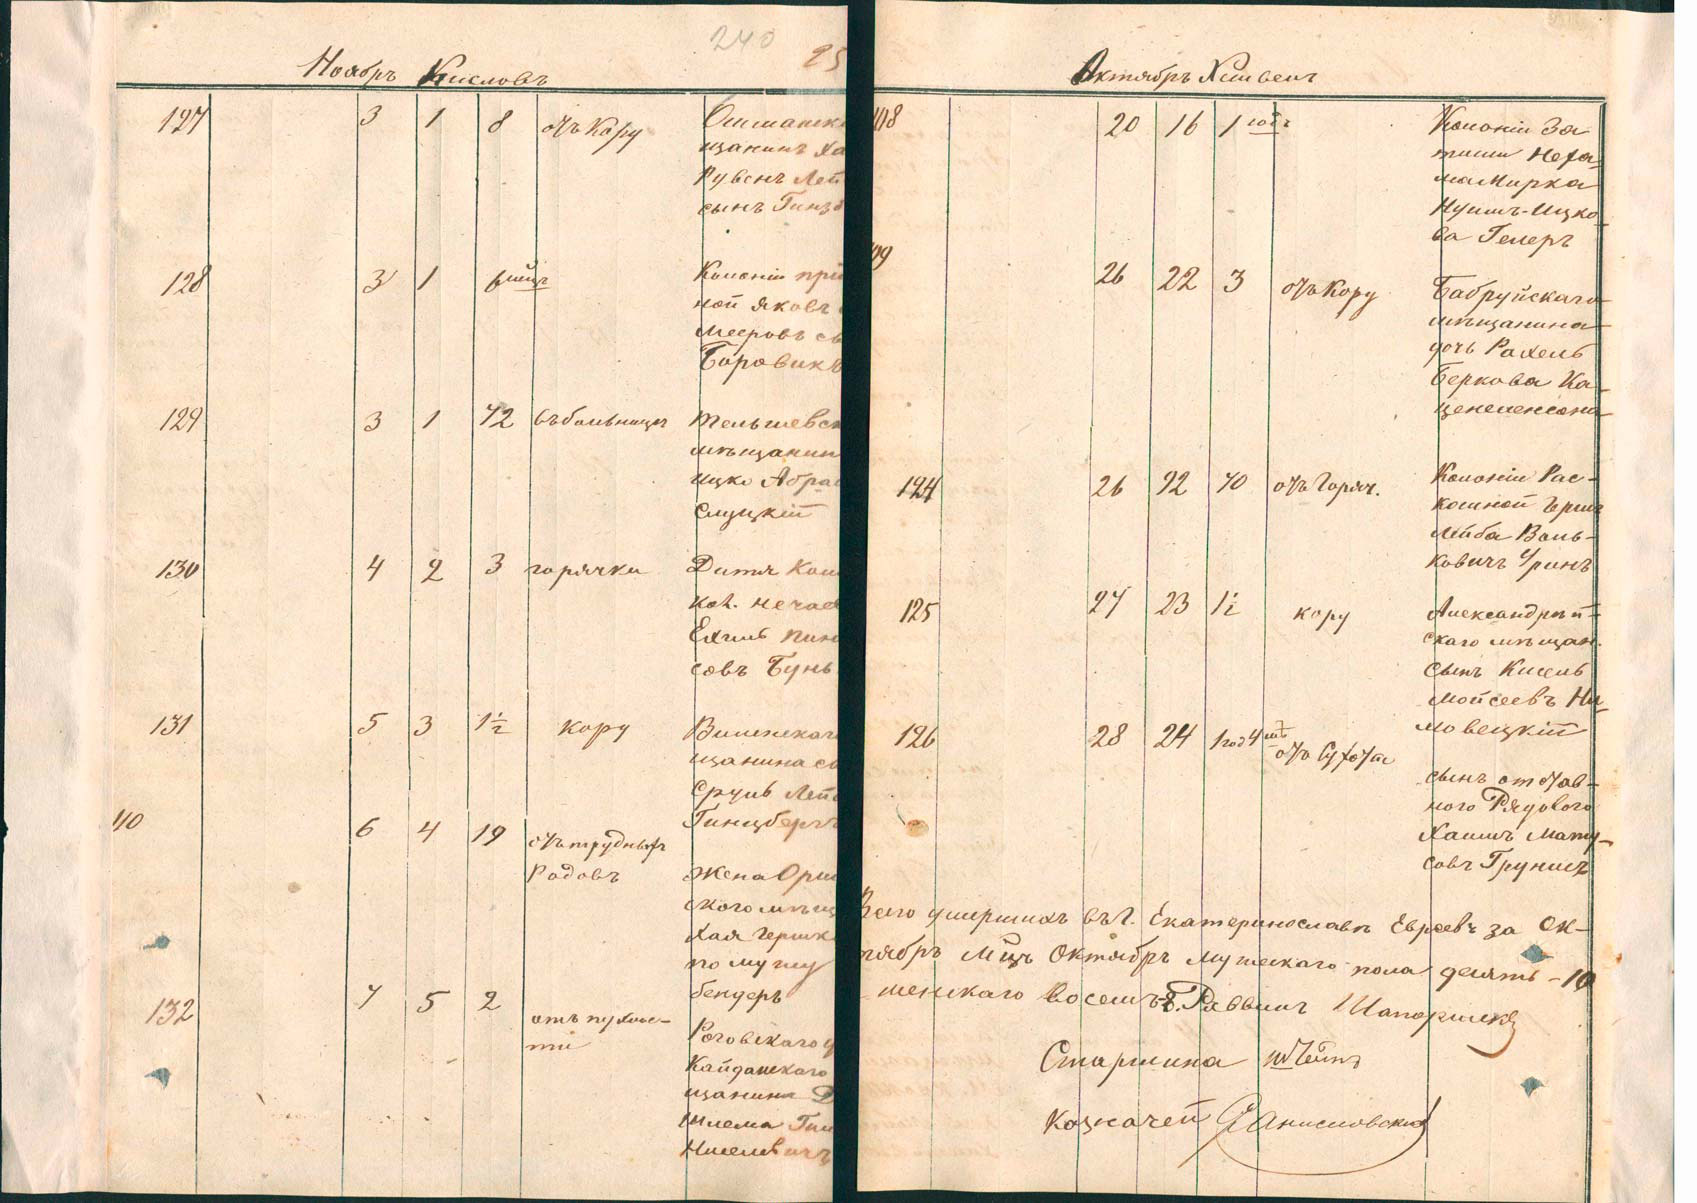 240
25
Ноябрь Кислевъ
127 3 1 8 отъ Кору
щанинъ Ха
Рувенъ Лей
сынъ Гинзб
128 3 1 6 мѣць
Колоніи при
ной Яковъ
Мееровъ сы
Боровикъ
129 3 1 72 въ больницѣ
Тельшевск
мѣщанин
Ицко Абра
Слуцкій
130 4 2 3 горячки
Дитя Кол
кол. Нечае
Ехиль Пин
совъ Бунь
131 5 3 1½ кору
Виленскаг
щанина сы
Сруль Лей
Гинцберг
40 6 4 19 отъ трудныхъ
Родовъ
Жена Орш
скаго мѣщ
Хая Гершк
по мужу
бендеръ
132 7 5 2
отъ пухлос-
ти
Роговскаго
Кайданскаго
щанина
Шлема
Октябрь Хешвенъ
118 20 16 1 годъ
Колоніи За
тиши Неха-
ма Мирка
Нушъ-Ицко-
ва Гелеръ
26 22 3 отъ Кору
Бабруйскаго
мѣщанина
дочь Рахель
Беркова Ка-
ценеленсона
124 26 22 70 отъ Горяч.
Колоніи Рас-
кошной Гершъ
Лейба Воль-
ковичъ
125 27 23 1½ кору
Александрій-
скаго мѣщан.
сынъ Кисель
Мойсеевъ Ни-
мовецкій
126 28 24 1 год 4 мѣ
отъ Сухоти
сынъ отстав-
ного Рядового
Хаимъ Мату-
совъ Грунинъ
Всего умершихъ въ Г. Екатеринославѣ Евреевъ за Ок-
тябрь Мѣць Октябрь мужескаго пола десять - 10
женскаго восемь - 8. Раввинъ
Старшина
Козначей